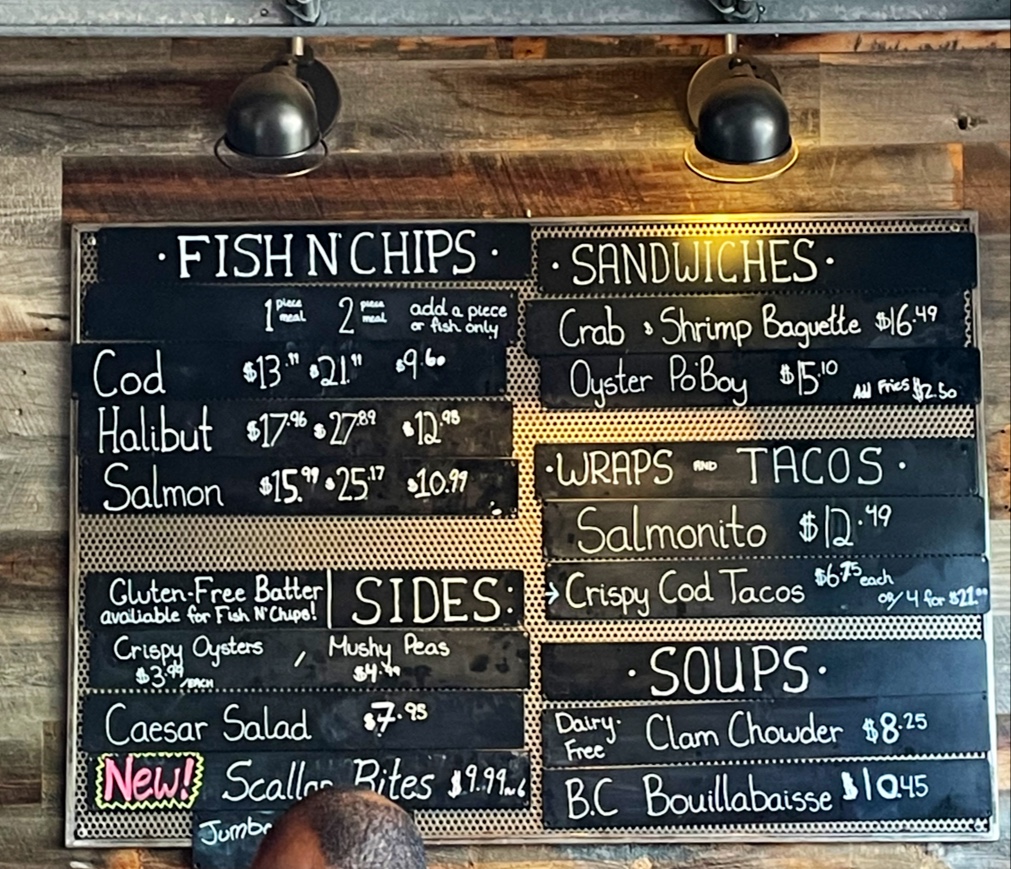 · FISH N' CHIPS ·
1 piece meal 2 piece meal add a piece or fish only
Cod $13.11 $21.11 $9.60
Halibut $17.96 $27.89 $12.98
Salmon $15.99 $25.17 $10.99
Gluten-Free Batter
avaliable for Fish N' Chips!
SIDES:
Crispy Oysters / Mushy Peas
$3.99 /EACH $4.99
Caesar Salad $7.95
New! Bites $9.99
· SANDWICHES ·
Crab & Shrimp Baguette $16.49
Oyster Po'Boy $15.10 Add Fries $2.50
· WRAPS AND TACOS ·
Salmonito $12.49
→ Crispy Cod Tacos $6.75 each
OR/ 4 for
· SOUPS ·
Dairy-Free Clam Chowder $8.25
B.C Bouillabaisse $10.45